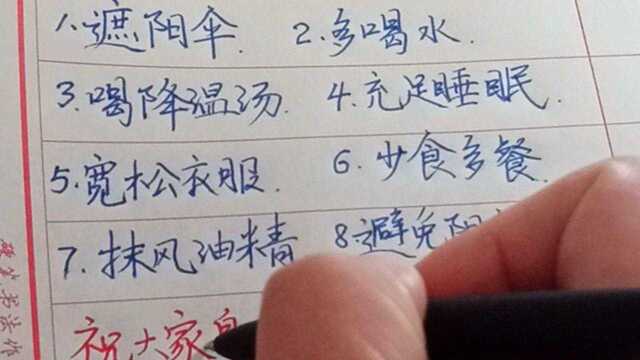 1.遮阳伞. 2.多喝水.
3.喝降温汤. 4.充足睡眠.
5.宽松衣服. 6.少食多餐.
7.抹风油精 8.避免阳
祝大家
硬笔书法作